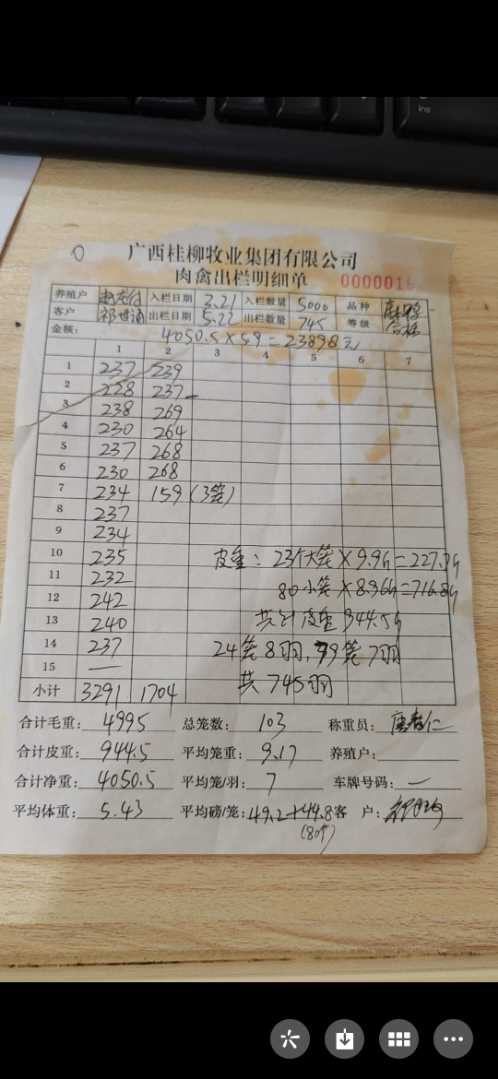 广西桂柳牧业集团有限公司
肉禽出栏明细单 000001
养殖户 入栏日期 3.21 入栏数量 5000 品种
客户 出栏日期 5.22 出栏数量 745 等级 合格
金额: 4050.5×59=23898元
1 2 3 4 5 6 7
1 237 239
2 228 237
3 238 269
4 230 264
5 237 268
6 230 268
7 234 159 (3笼)
8 237
9 234
10 235 皮重: 23个大笼×9.9
11 232 80小笼×8.96
12 242
13 240 共计皮重944.5
14 237 24笼8羽, 79笼7羽
15 —
小计 3291 1704 共745羽
合计毛重: 4995 总笼数: 103 称重员:
合计皮重: 944.5 平均笼重: 9.17 养殖户:
合计净重: 4050.5 平均笼/羽: 7 车牌号码: —
平均体重: 5.43 平均磅/笼: 49.2+44.8 客 户:
(80个)
ins